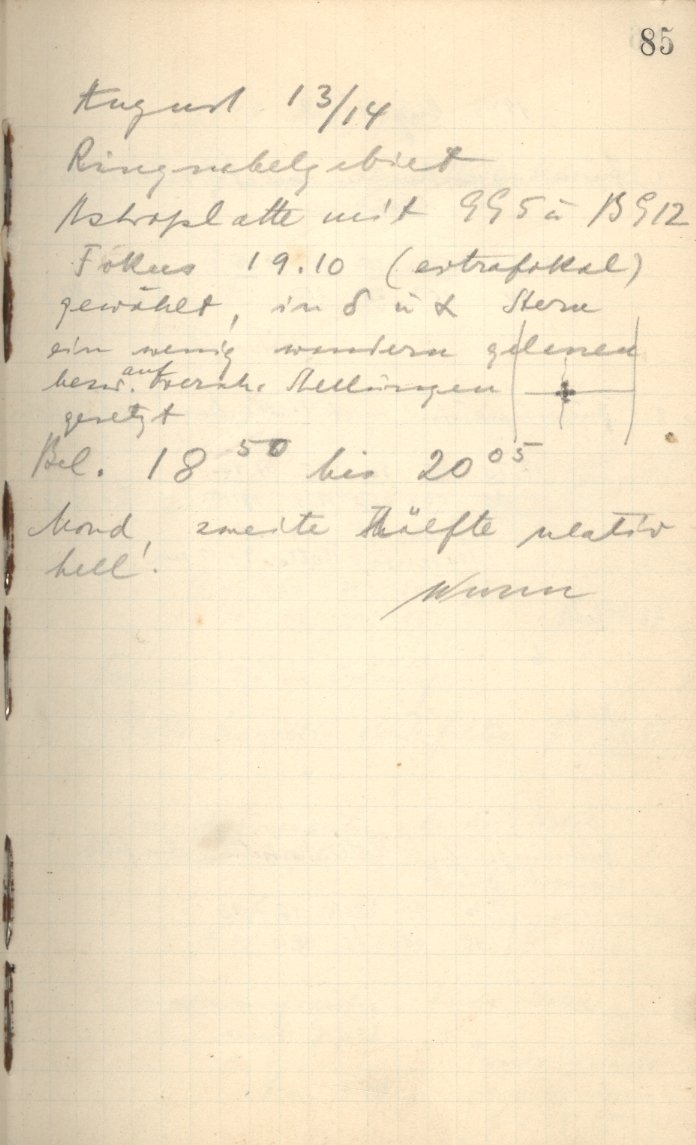 85
August 13/14
Ringnebelgebiet
Astroplatte mit GG5 u BG12
Fokus 19.10 (extrafokal)
gewählt, in δ u α Stern
ein wenig wandern gelassen
bezw. auf versch. Stellungen
gesetzt
Bel. 18 50 bis 20 05
Mond, zweite Hälfte relativ
hell!
Wurm